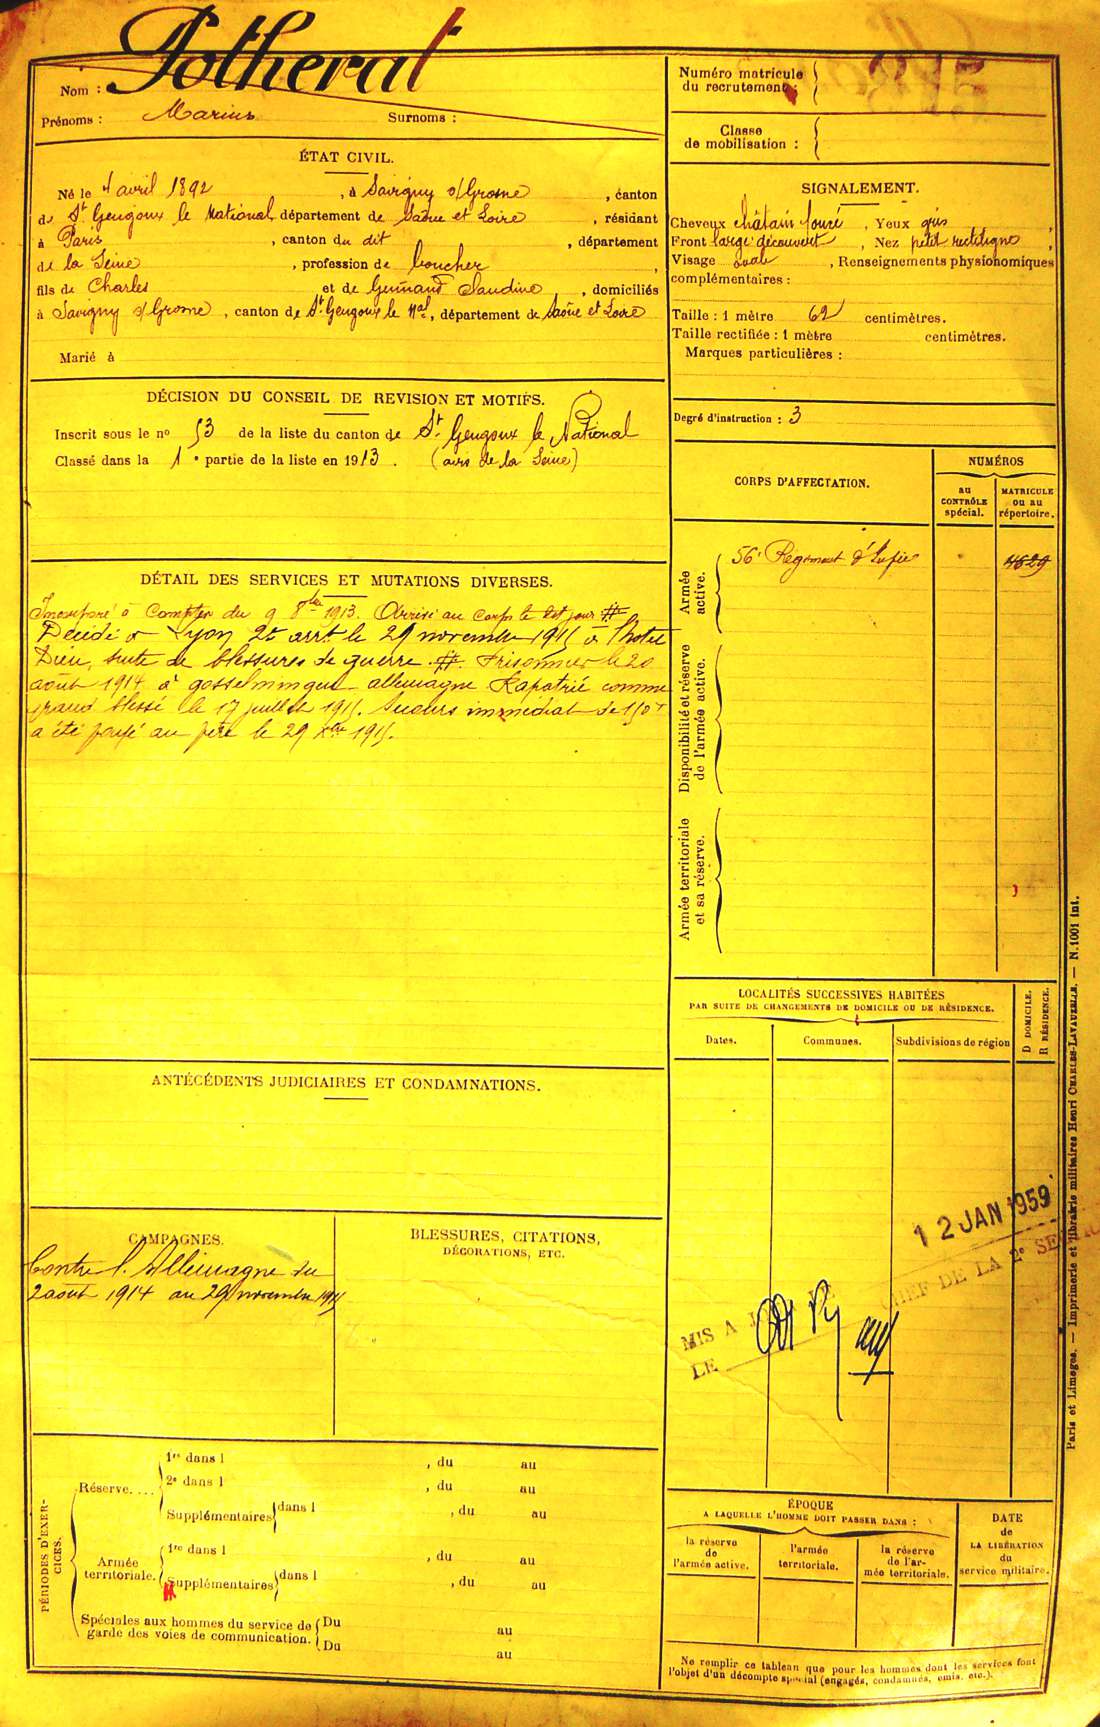 Nom : Potherat
Prénoms : Marius Surnoms :
ÉTAT CIVIL.
Né le 4 avril 1892, à Savigny s/Grosne, canton
de St Gengoux le National département de Saône et Loire, résidant
à Paris, canton du dit, département
de la Seine, profession de boucher,
fils de Charles et de Claudine, domiciliés
à Savigny s/Grosne, canton de St Gengoux le Nal, département de Saône et Loire
Marié à
DÉCISION DU CONSEIL DE REVISION ET MOTIFS.
Inscrit sous le no 53 de la liste du canton de St Gengoux le National
Classé dans la 1e partie de la liste en 1913. (avis de la Seine)
DÉTAIL DES SERVICES ET MUTATIONS DIVERSES.
Incorporé à compter du 9 8bre 1913. Arrivé au corps le dit jour #
Décédé à Lyon 2e arrt le 29 novembre 1915 à l'hotel
Dieu, suite de blessures de guerre #. Prisonnier le 20
août 1914 à gosselmingen allemagne Rapatrié comme
grand blessé le 17 juillet 1915. Secours immédiat de 150f
a été payé au père le 29 Xbre 1915.
ANTÉCÉDENTS JUDICIAIRES ET CONDAMNATIONS.
CAMPAGNES.
Contre l'Allemagne du
2 août 1914 au 29 novembre 1915
BLESSURES, CITATIONS,
DÉCORATIONS, ETC.
PÉRIODES D'EXER-
CICES.
Réserve....
1re dans l , du au
2e dans l , du au
Supplémentaires dans l , du au
Armée
territoriale.
1re dans l , du au
Supplémentaires dans l , du au
Spéciales aux hommes du service de
garde des voies de communication.
Du au
Du au
Numéro matricule
du recrutement :
Classe
de mobilisation :
SIGNALEMENT.
Cheveux châtain foncé, Yeux gris,
Front large découvert, Nez petit rectiligne,
Visage oval, Renseignements physionomiques
complémentaires :
Taille : 1 mètre 62 centimètres.
Taille rectifiée : 1 mètre centimètres.
Marques particulières :
Degré d'instruction : 3
CORPS D'AFFECTATION.
NUMÉROS
au
CONTRÔLE
spécial.
MATRICULE
ou au
répertoire.
Armée
active.
56e Régiment d'Infie 4629
Disponibilité et réserve
de l'armée active.
Armée territoriale
et sa réserve.
LOCALITÉS SUCCESSIVES HABITÉES
PAR SUITE DE CHANGEMENTS DE DOMICILE OU DE RÉSIDENCE.
Dates.
Communes.
Subdivisions de région
D DOMICILE.
R RÉSIDENCE.
12 JAN 1959
MIS A JOUR LE
CHEF DE LA 2e
LE
ÉPOQUE
A LAQUELLE L'HOMME DOIT PASSER DANS :
la réserve
de
l'armée active.
l'armée
territoriale.
la réserve
de l'ar-
mée territoriale.
DATE
de
LA LIBÉRATION
du
service militaire.
Ne remplir ce tableau que pour les hommes dont les services font
l'objet d'un décompte spécial (engagés, condamnés, omis, etc.).
Paris et Limoges. — Imprimerie et librairie militaires Henri CHARLES-LAVAUZELLE. — N. 1001 int.